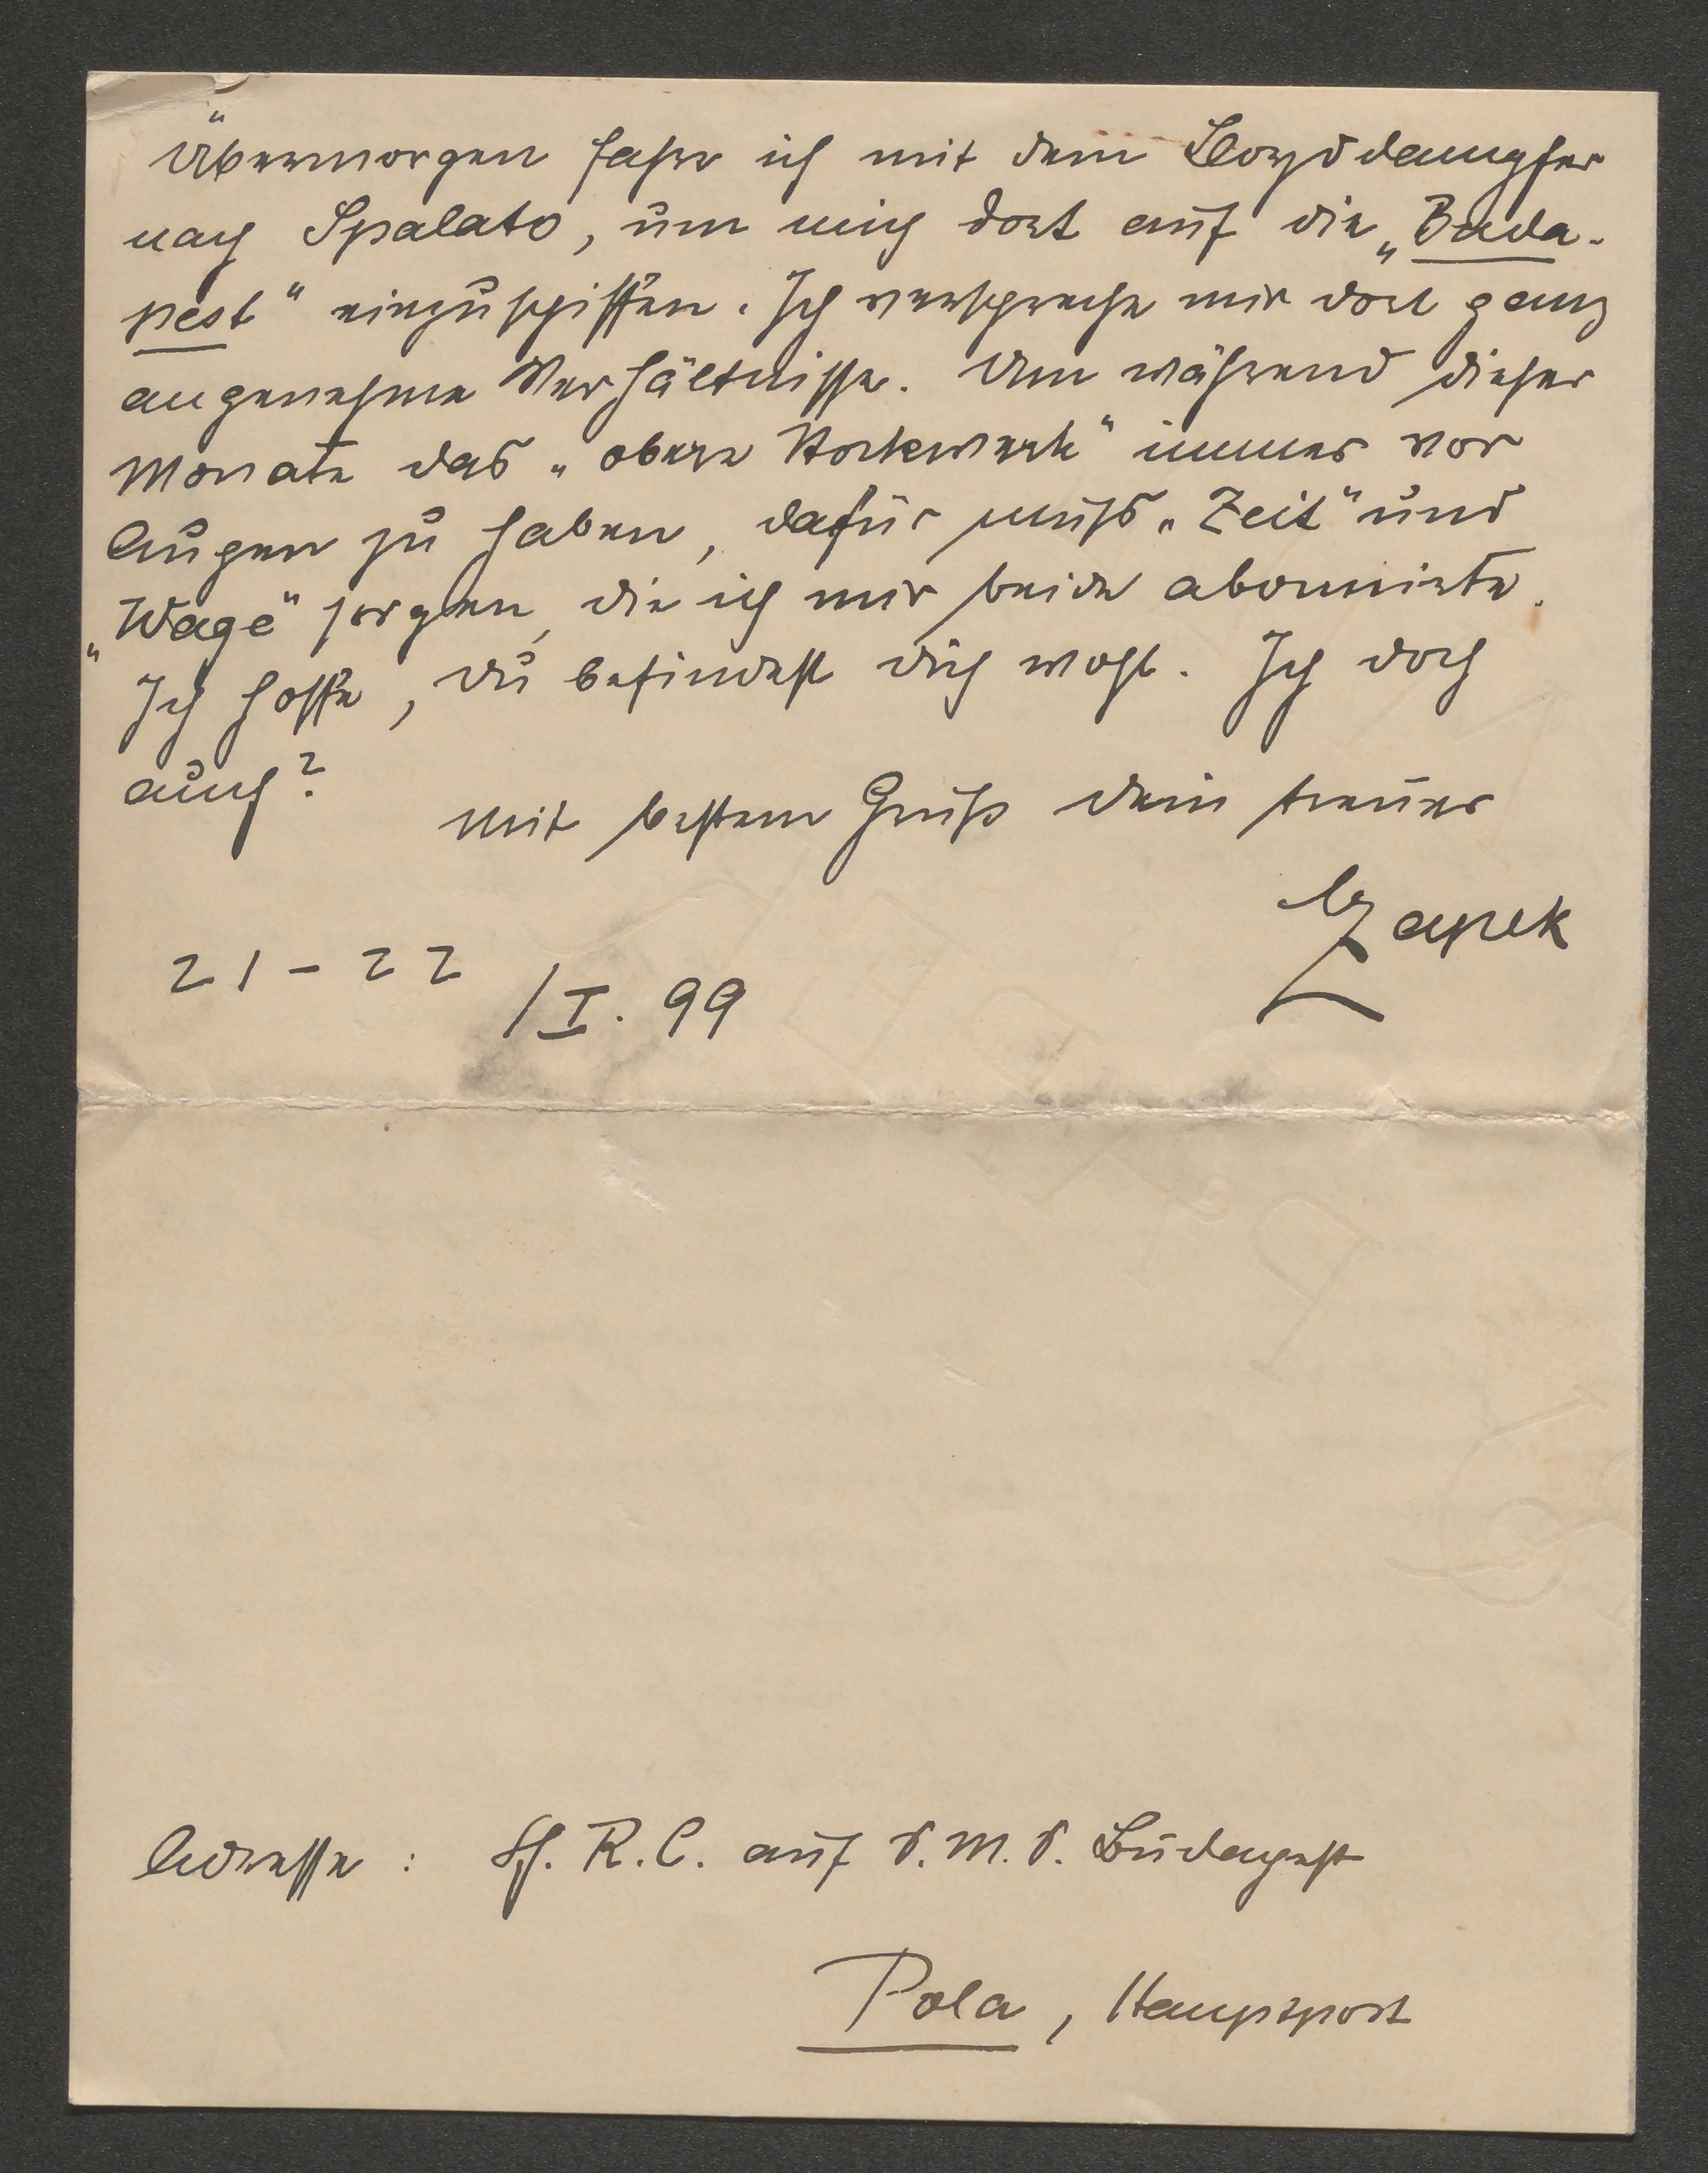 Übermorgen fahre ich mit dem Lloyddampfer
nach Spalato, um mich dort auf die „Buda-
pest“ einzuschiffen. Ich verspreche mir dort ganz
angenehme Verhältnisse. Um während dieser
Monate das „obere Stockwerk“ immer vor
Augen zu haben, dafür muß „Zeit“ und
„Wage“ sorgen, die ich mir beide abonnirte.
Ich hoffe, du befindest dich wohl. Ich doch
auch?
Mit bestem Gruß dein treuer
Czapek
21-22/I. 99
Adresse: Sf. R. C. auf S. M. S. Budapest
Pola, Hauptpost